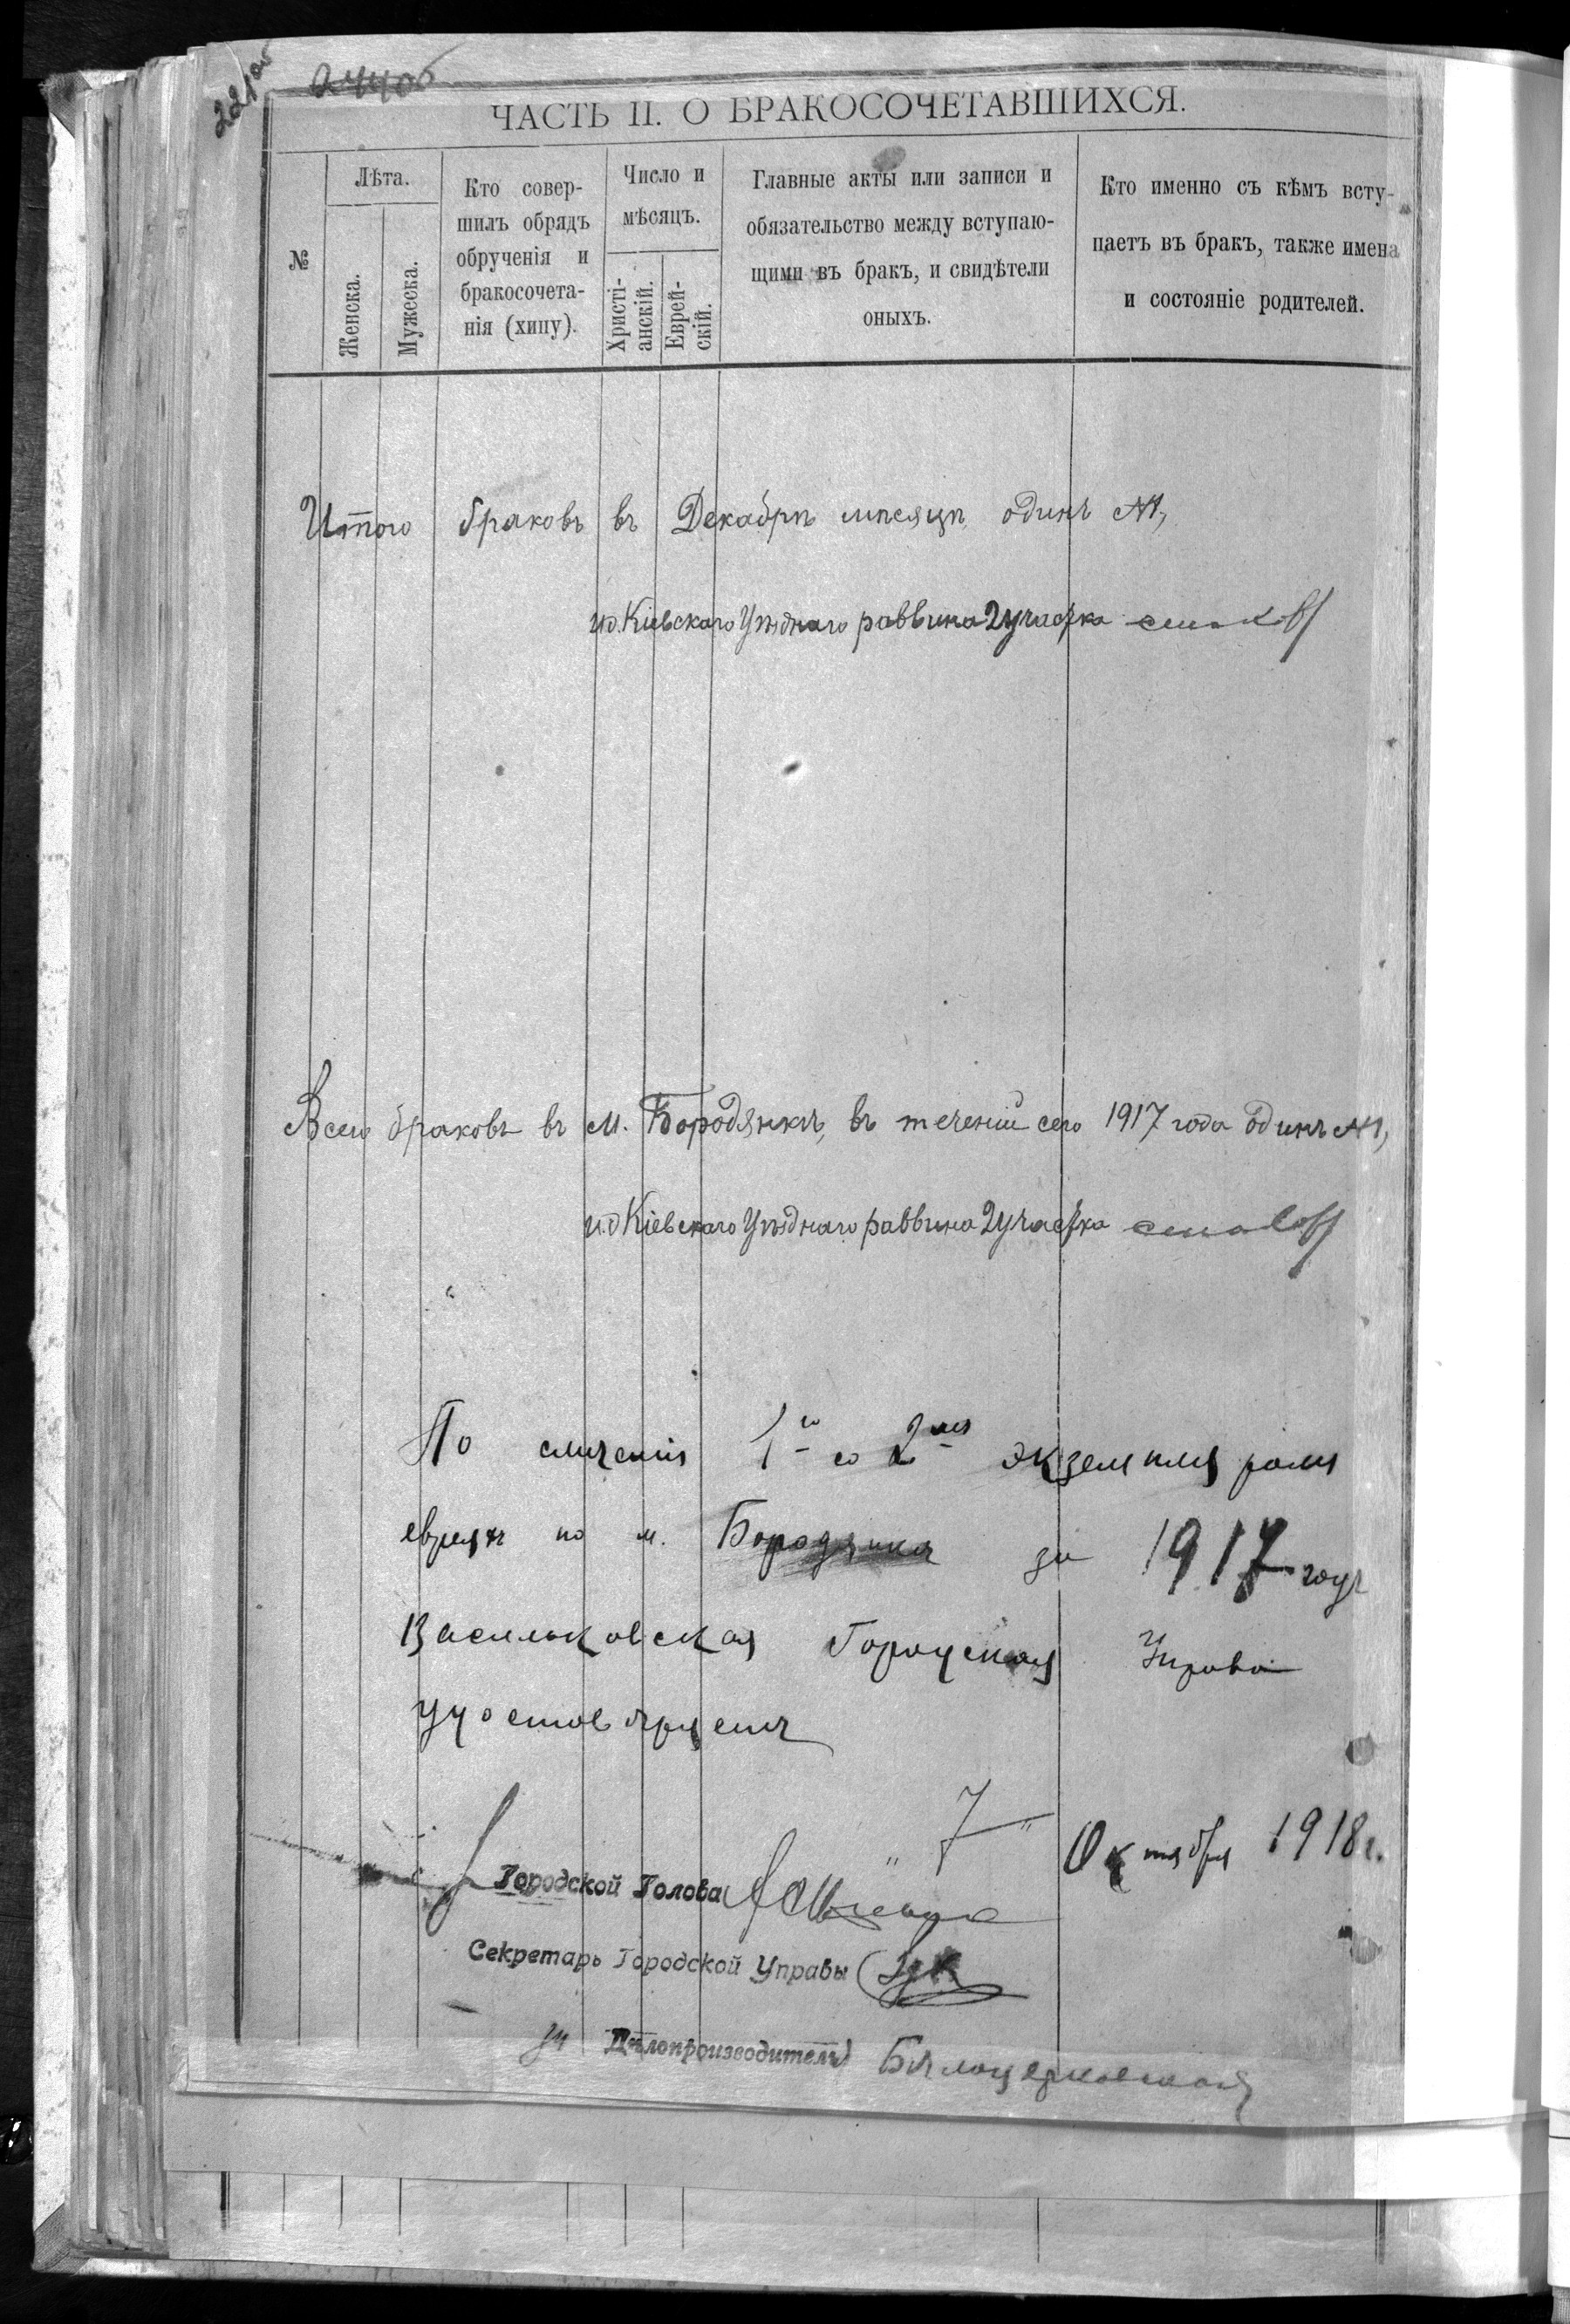 221об
244об
ЧАСТЬ II. О БРАКОСОЧЕТАВШИХСЯ.
№
Лѣта.
Женска.
Мужеска.
Кто совер-
шилъ обрядъ
обрученія и
бракосочета-
нія (хипу).
Число и
мѣсяцъ.
Христі-
анскій.
Еврей-
скій.
Главные акты или записи и
обязательство между вступаю-
щими въ бракъ, и свидѣтели
оныхъ.
Кто именно съ кѣмъ всту-
паетъ въ бракъ, также имена
и состояніе родителей.
Итого браковъ въ Декабрѣ мѣсяцѣ одинъ №1,
и.д. Кіевскаго Уѣзднаго раввина 2 участка
Всего браковъ въ м. Бородянкѣ, въ теченіи сего 1917 года одинъ №1,
и.д Кіевскаго Уѣзднаго раввина 2 участка
По сличенія 1го со 2мъ экземпляромъ
евреяхъ по м. Бородянка за 1917 годъ
Васильковская Городская Управа
удостовѣряетъ
"7" Октября 1918 г.
Городской Голова
Секретарь Городской Управы
За Дѣлопроизводитель Бѣлоцерковскій